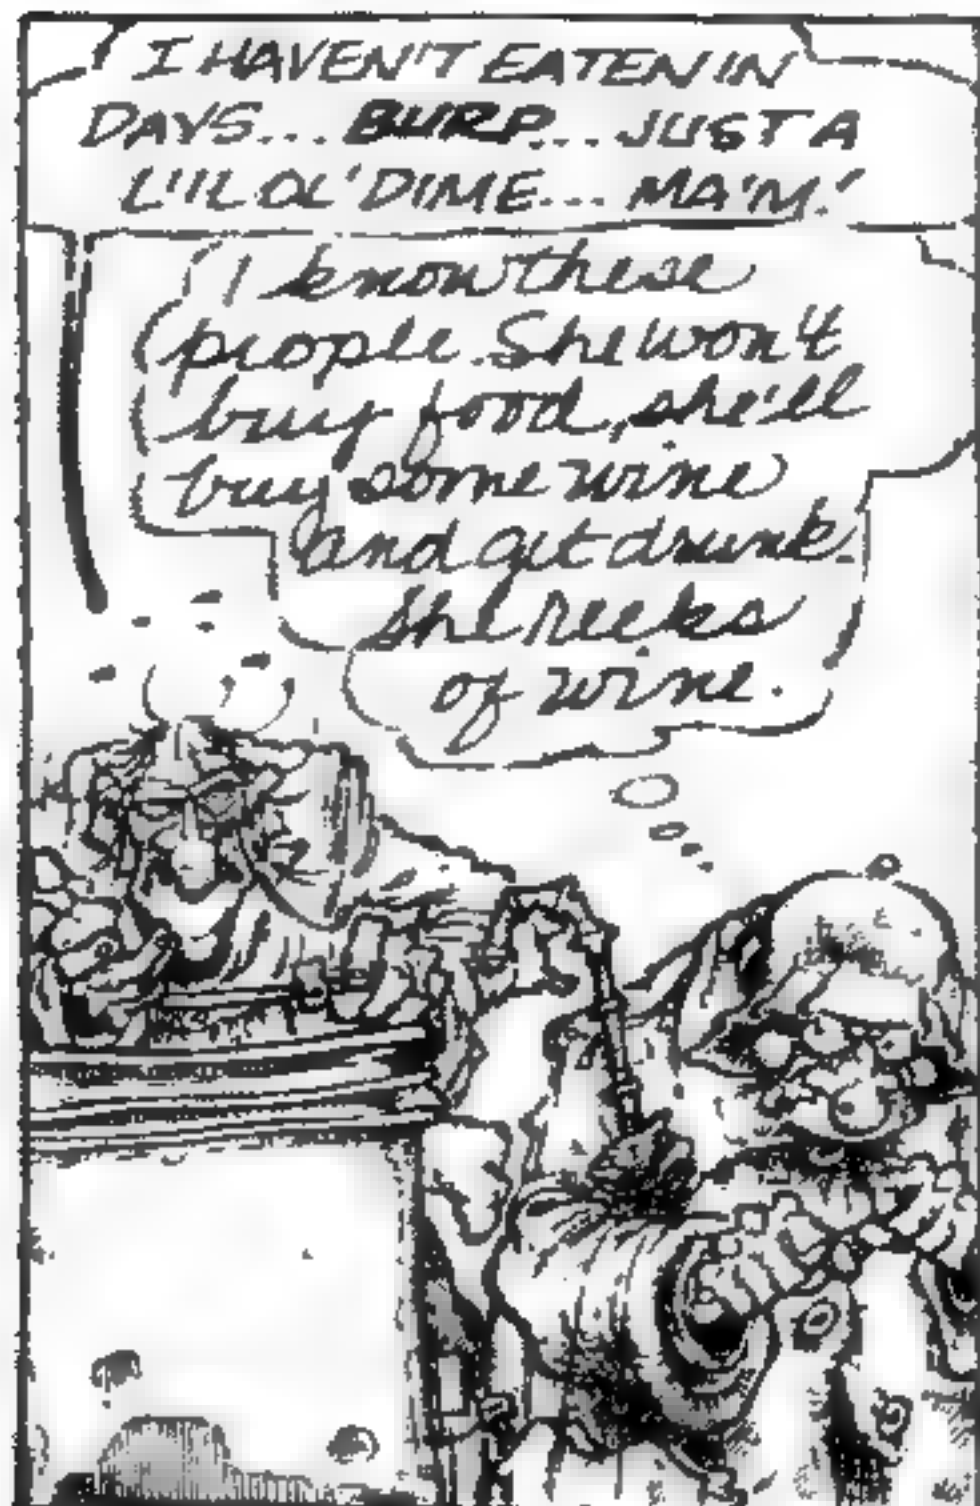 I HAVEN'T EATEN IN
DAYS... BURP... JUST A
L'IL OL' DIME... MA'M!
I know these
people. She won't
buy food, she'll
buy some wine
and get drunk.
She reeks
of wine.